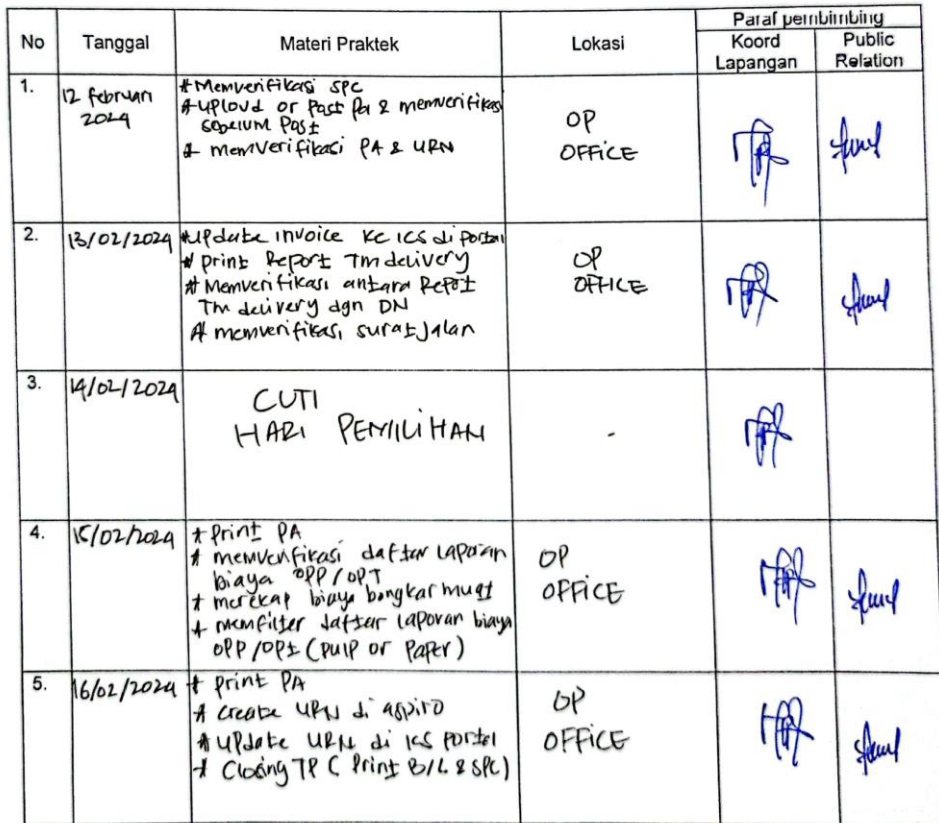 No Tanggal Materi Praktek Lokasi Paraf pembimbing
Koord Lapangan Public Relation
1. 12 februari 2024
* Memverifikasi SPC
* Uploud or Past Pa & memverifikasi
sebelum Post
* memverifikasi PA & URN
OP
OFFICE
2. 13/02/2024
* Update invoice ke ICS di portal
* print Report Tm delivery
* Memverifikasi antara Report
Tm delivery dgn DN
* memverifikasi surat jalan
OP
OFFICE
3. 14/02/2024
CUTI
HARI PEMILIHAN
-
4. 15/02/2024
* Print PA
* memverifikasi daftar laporan
biaya OPP/OPT
* merekap biaya bongkar muat
* memfilter daftar laporan biaya
OPP/OPT (pulp or Paper)
OP
OFFICE
5. 16/02/2024
* print PA
* Create URN di aspiro
* Update URN di ICS Portal
* Closing TP ( Print B/L & SPC)
OP
OFFICE